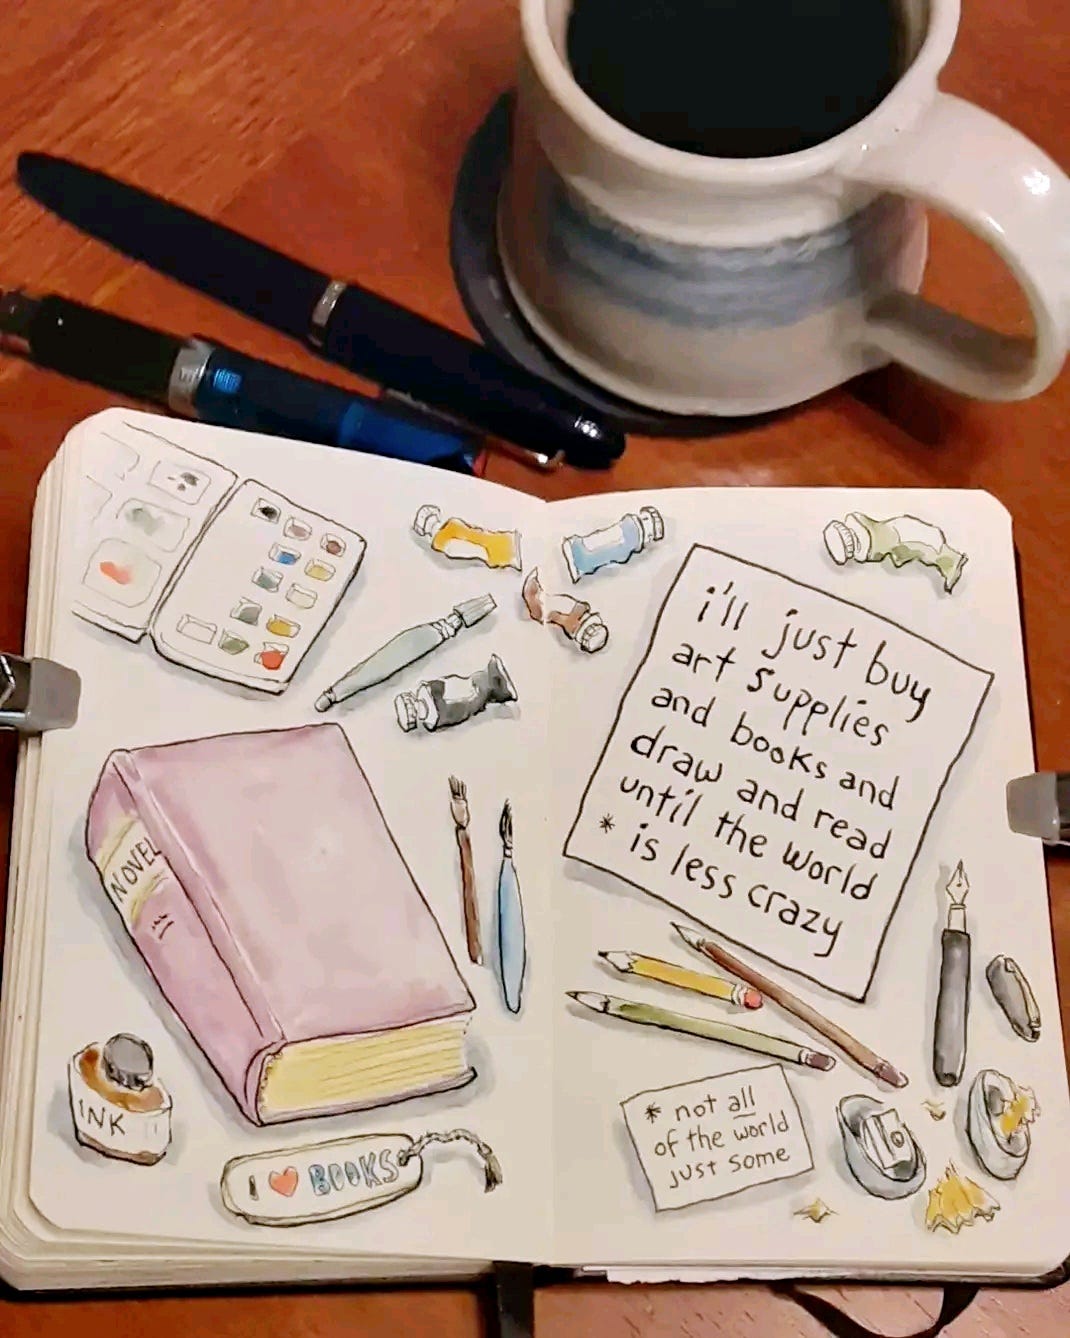 NOVEL
INK
I ❤ BOOKS
i'll just buy
art supplies
and books and
draw and read
until the world
* is less crazy
* not all
of the world
just some